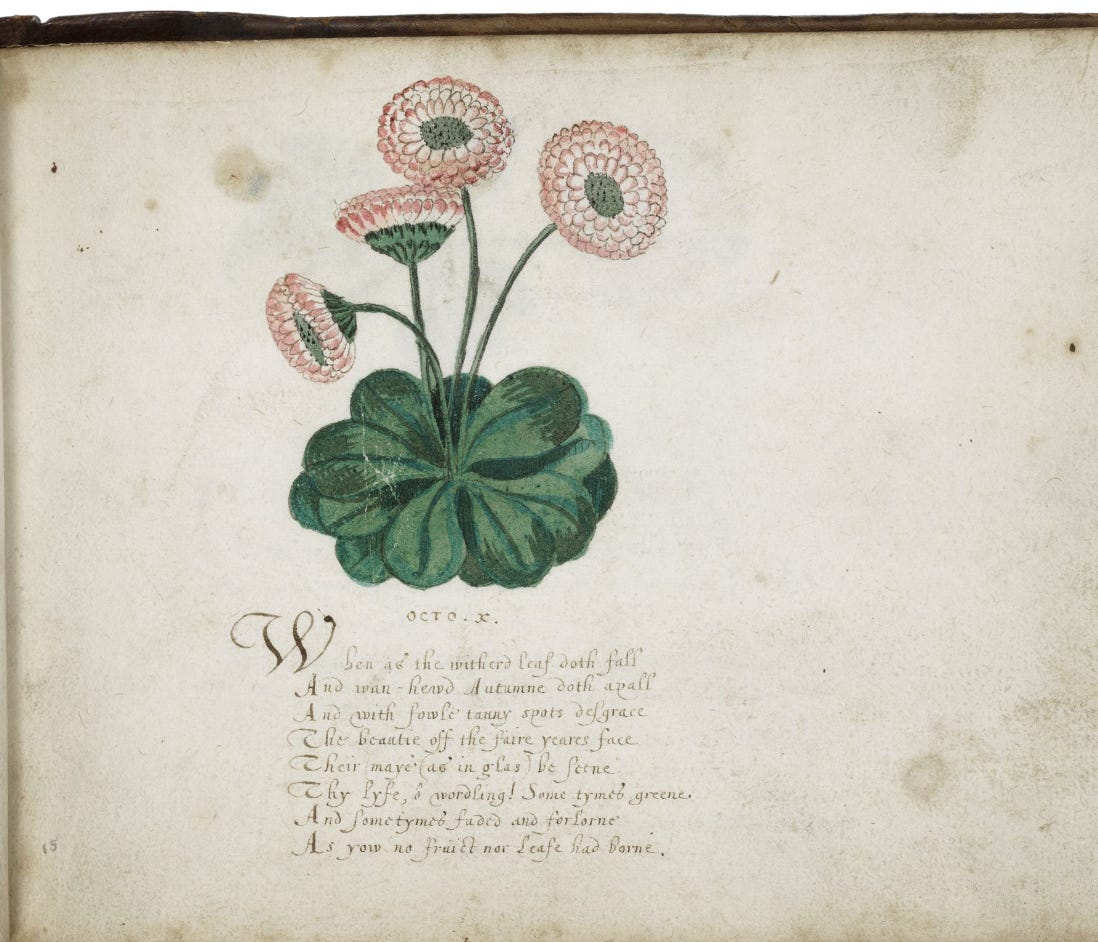 OCTO. X.
When as the witherd leaf doth fall
And wan-hewd Autumne doth apall
And with fowle tauny spots desgrace
The beautie off the faire yeares face
Their maye (as in glas) be seene
Thy lyfe, ô wordling! Some tymes greene.
And sometymes faded and forlorne
As yow no fruict nor leafe had borne.
15